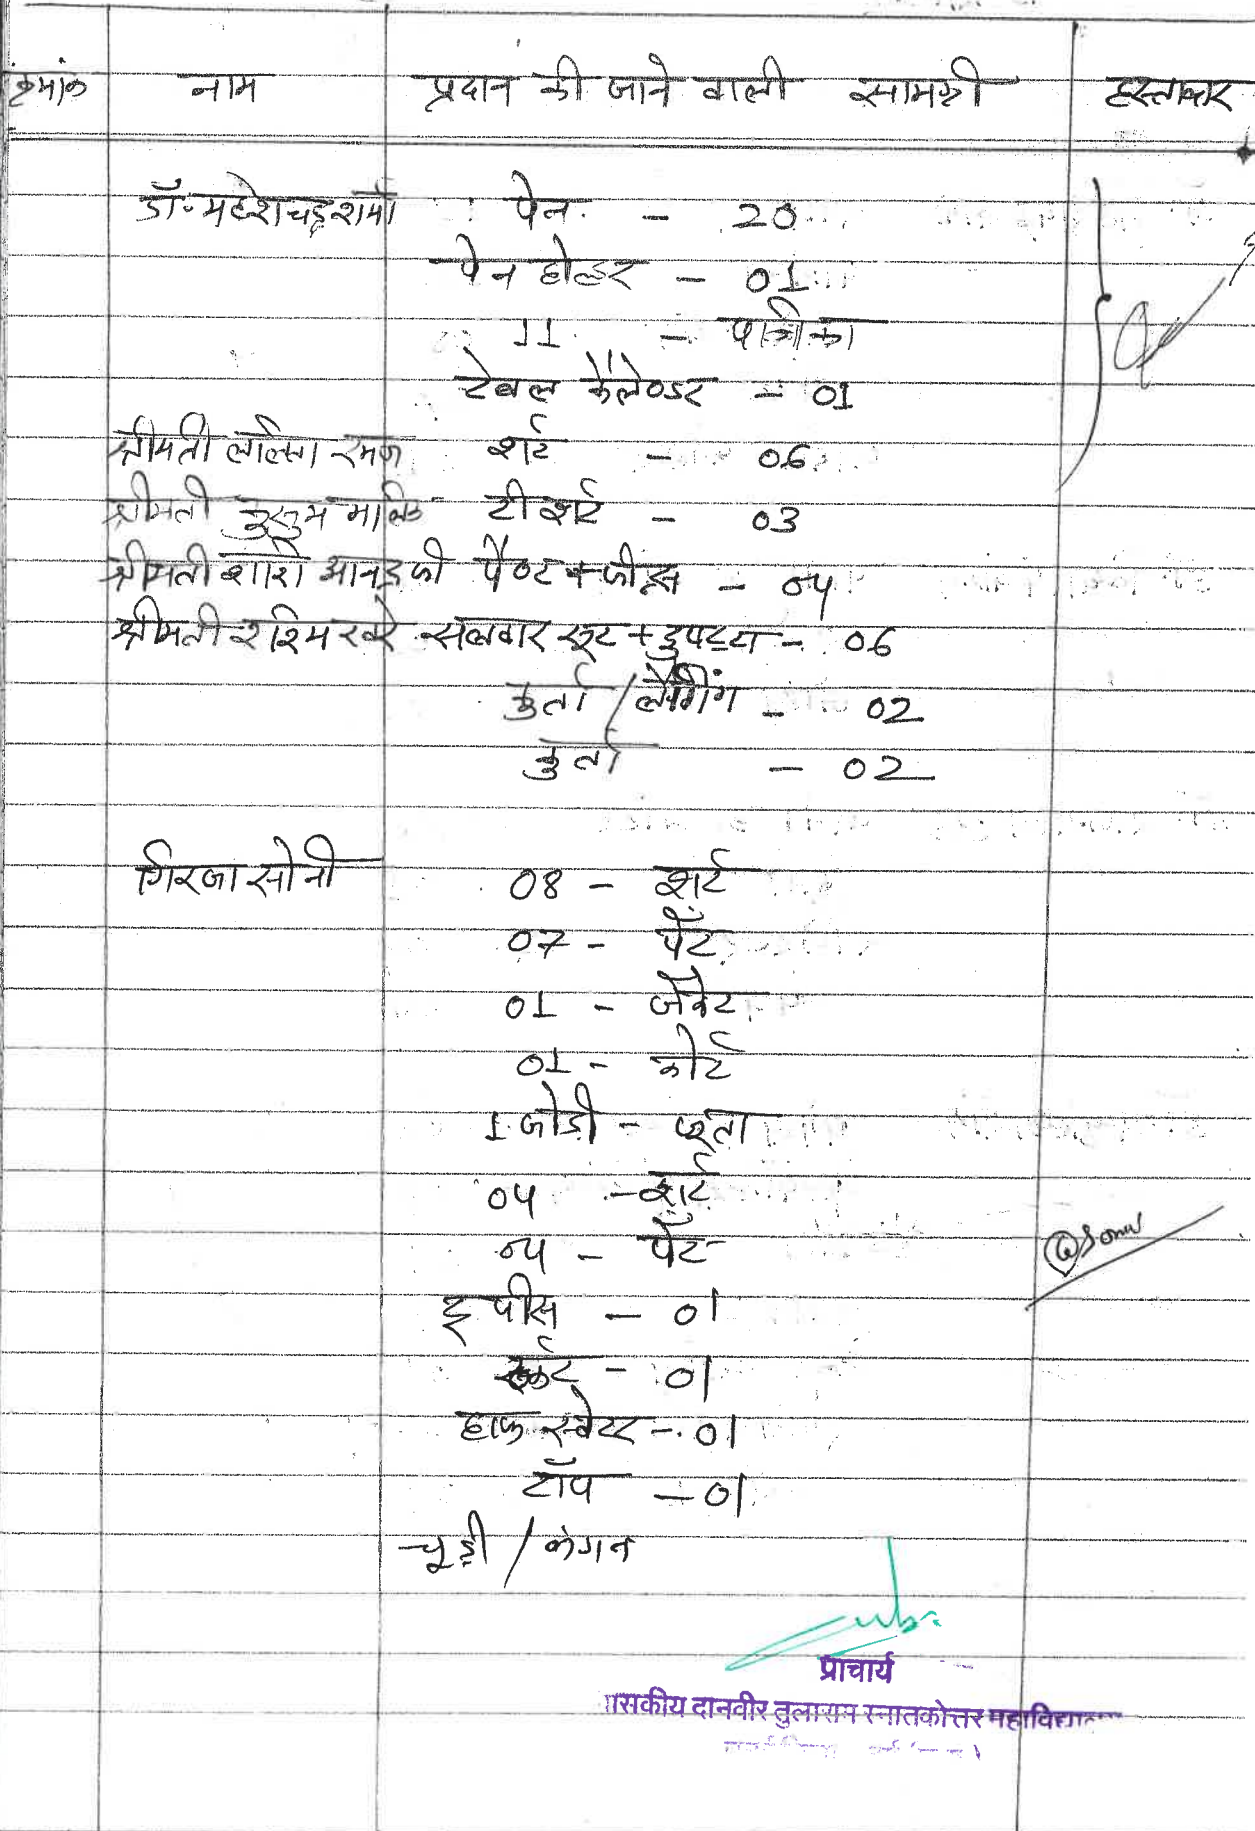 क्रमांक नाम प्रदान की जाने वाली सामग्री हस्ताक्षर
डॉ. महेशचंद्र शर्मा पेन - 20
पेन होल्डर - 01
11 - पत्रिका
टेबल कैलेण्डर - 01
श्रीमती ललिता शर्ट - 06
श्रीमती कुसुम टी शर्ट - 03
श्रीमती पैण्ट + जीन्स - 04
श्रीमती रश्मि खरे सलवार सूट + दुपट्टा - 06
कुर्ता / लैगिंग - 02
कुर्ता - 02
गिरजा सोनी 08 - शर्ट
07 - पेंट
01 - जेकेट
01 - कोर्ट
1 जोडी - जूता
04 - शर्ट
04 - पेंट
पीस - 01
स्कर्ट - 01
हाफ स्वेटर - 01
टॉप - 01
चूड़ी / कंगन
प्राचार्य
ासकीय दानवीर तुलाराम स्नातकोत्तर महाविद्या